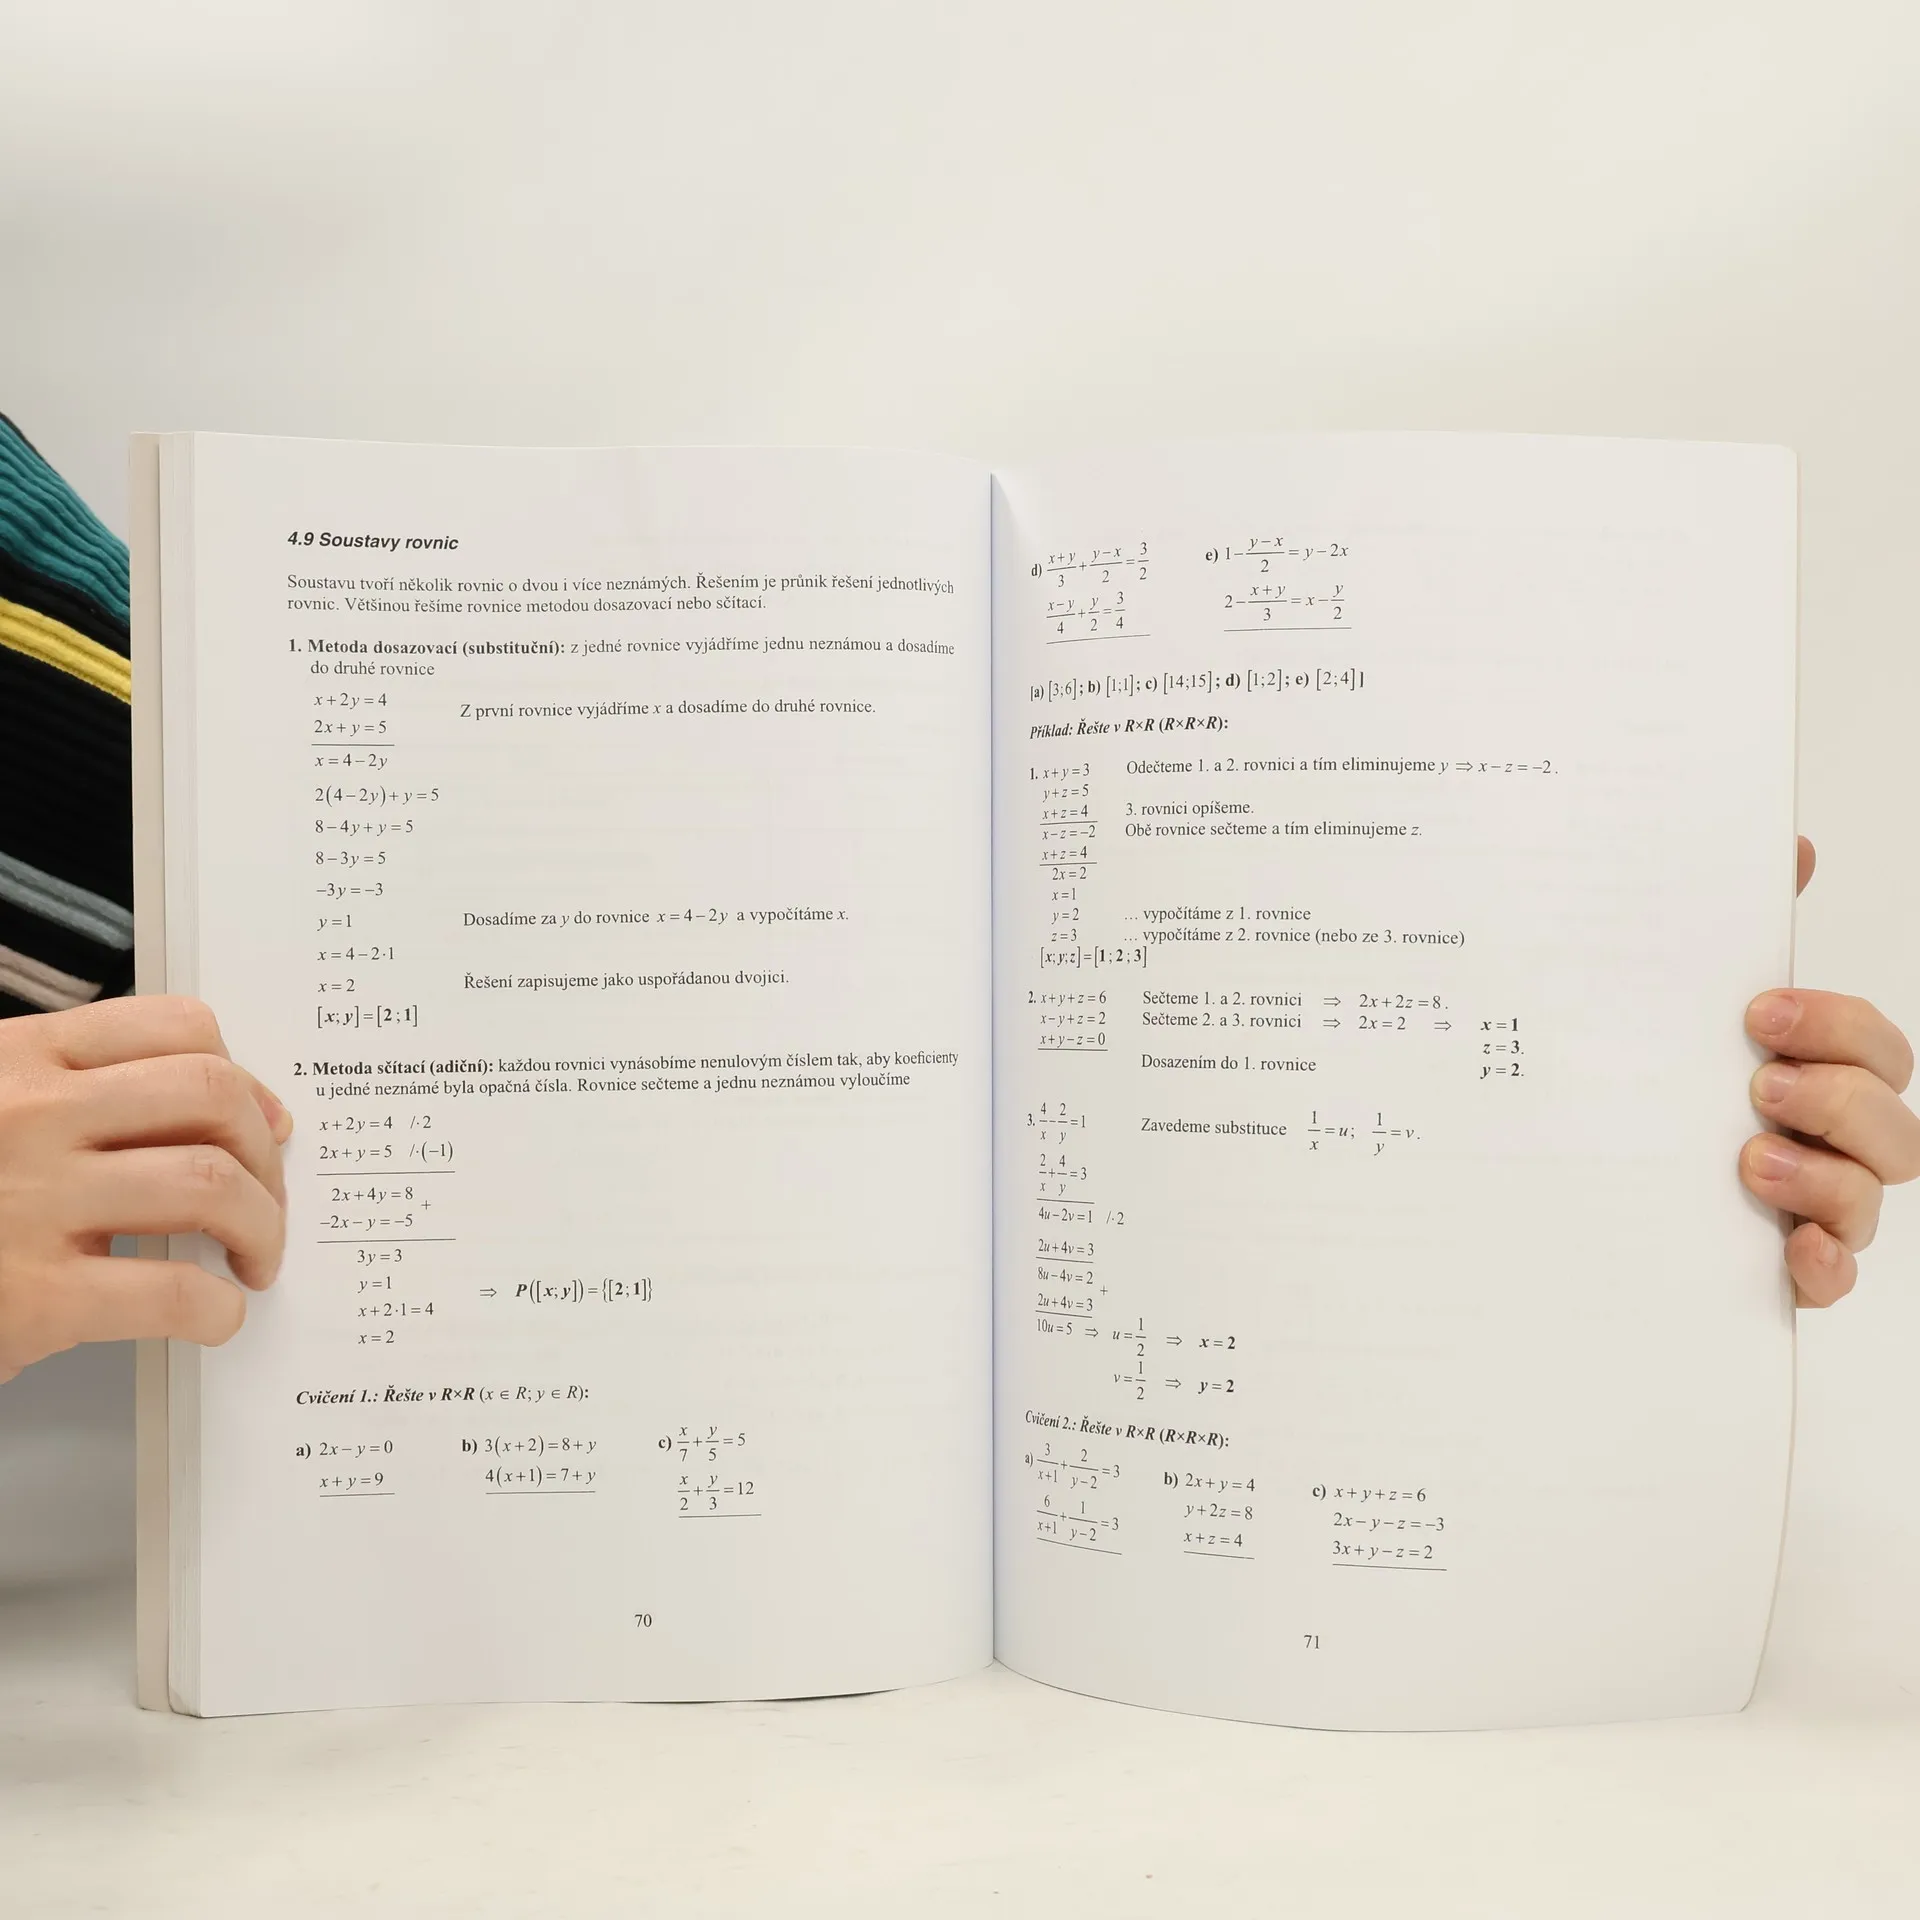 4.9 Soustavy rovnic
Soustavu tvoří několik rovnic o dvou i více neznámých. Řešením je průnik řešení jednotlivých
rovnic. Většinou řešíme rovnice metodou dosazovací nebo sčítací.
1. Metoda dosazovací (substituční): z jedné rovnice vyjádříme jednu neznámou a dosadíme
do druhé rovnice
x+2y=4
Z první rovnice vyjádříme x a dosadíme do druhé rovnice.
2x+y=5
x=4−2y
2(4−2y)+y=5
8−4y+y=5
8−3y=5
−3y=−3
y=1 Dosadíme za y do rovnice x=4−2y a vypočítáme x.
x=4−2·1
x=2 Řešení zapisujeme jako uspořádanou dvojici.
[x;y]=[2;1]
2. Metoda sčítací (adiční): každou rovnici vynásobíme nenulovým číslem tak, aby koeficienty
u jedné neznámé byla opačná čísla. Rovnice sečteme a jednu neznámou vyloučíme
x+2y=4 /·2
2x+y=5 /·(−1)
2x+4y=8
+
−2x−y=−5
3y=3
y=1 ⇒ P([x;y])={[2;1]}
x+2·1=4
x=2
Cvičení 1.: Řešte v R×R (x ∈ R; y ∈ R):
a) 2x−y=0 b) 3(x+2)=8+y c) x/7+y/5=5
x+y=9 4(x+1)=7+y x/2+y/3=12
70
d) (x+y)/3+(y−x)/2=3/2 e) 1−(y−x)/2=y−2x
(x−y)/4+y/2=3/4 2−(x+y)/3=x−y/2
[a) [3;6]; b) [1;1]; c) [14;15]; d) [1;2]; e) [2;4]]
Příklad: Řešte v R×R (R×R×R):
1. x+y=3 Odečteme 1. a 2. rovnici a tím eliminujeme y ⇒ x−z=−2.
y+z=5
x+z=4 3. rovnici opíšeme.
x−z=−2 Obě rovnice sečteme a tím eliminujeme z.
x+z=4
2x=2
x=1
y=2 … vypočítáme z 1. rovnice
z=3 … vypočítáme z 2. rovnice (nebo ze 3. rovnice)
[x;y;z]=[1;2;3]
2. x+y+z=6 Sečteme 1. a 2. rovnici ⇒ 2x+2z=8.
x−y+z=2 Sečteme 2. a 3. rovnici ⇒ 2x=2 ⇒ x=1
x+y−z=0 z=3.
Dosazením do 1. rovnice y=2.
3. 4/x−2/y=1 Zavedeme substituce 1/x=u; 1/y=v.
2/x+4/y=3
4u−2v=1 /·2
2u+4v=3
8u−4v=2
+
2u+4v=3
10u=5 ⇒ u=1/2 ⇒ x=2
v=1/2 ⇒ y=2
Cvičení 2.: Řešte v R×R (R×R×R):
a) 3/(x+1)+2/(y−2)=3 b) 2x+y=4 c) x+y+z=6
6/(x+1)+1/(y−2)=3 y+2z=8 2x−y−z=−3
x+z=4 3x+y−z=2
71